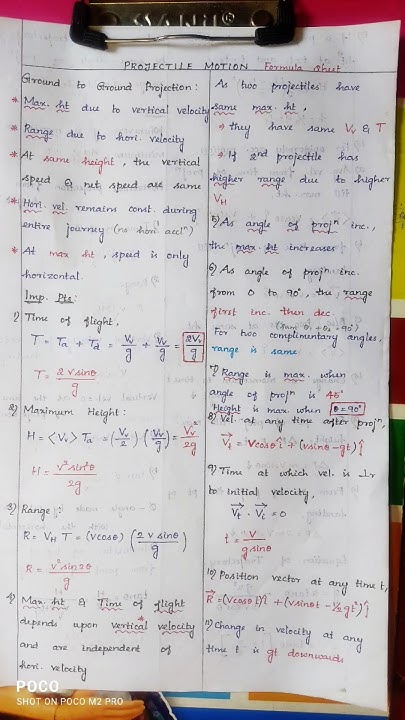 PROJECTILE MOTION Formula Sheet
Ground to Ground Projection:
* Max. ht due to vertical velocity
* Range due to hori. velocity
* At same height, the vertical
speed & net speed are same
* Hori. vel. remains const. during
entire journey (no hori. accln)
* At max ht, speed is only
horizontal.
Imp. Pts:
1) Time of flight,
T = Ta + Td = Vv/g + Vv/g = 2Vv/g
T = 2v sinθ/g
2) Maximum Height:
H = <Vv> Ta = (Vv/2) (Vv/g) = Vv²/2g
H = v² sin²θ/2g
3) Range:
R = VH T = (v cosθ) (2 v sinθ/g)
R = v² sin2θ/g
4) Max. ht & Time of flight
depends upon vertical velocity
and are independent of
hori. velocity
As two projectiles have
same max. ht,
→ they have same Vv & T
→ If 2nd projectile has
higher range due to higher
VH
5) As angle of projn inc.,
the max. ht increases
6) As angle of projn inc.
from 0 to 90°, the range
first inc. then dec.
(sum θ1 + θ2 = 90°)
For two complimentary angles,
range is same.
7) Range is max. when
angle of projn is 45°
Height is max. when θ = 90°
8) Vel. at any time after projn,
Vt = v cosθ î + (v sinθ - gt) ĵ
9) Time at which vel. is ⊥r
to initial velocity,
Vt . Vi = 0
t = v/g sinθ
10) Position vector at any time t,
R = (v cosθ t) î + (v sinθt - ½ gt²) ĵ
11) Change in velocity at any
time t is gt downwards
POCO
SHOT ON POCO M2 PRO